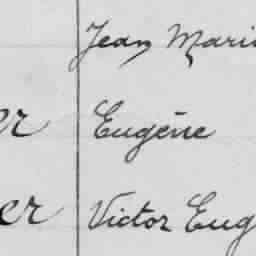 Jean Mari
er Eugène
er Victor Eug